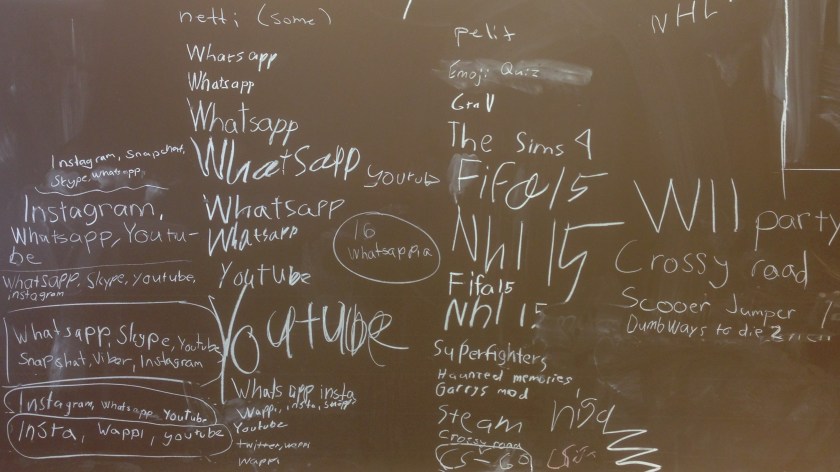 netti (some)
Whatsapp
Whatsapp
Whatsapp
Whatsapp
Whatsapp
Whatsapp
Youtube
Youtube
Whatsapp insta
Wappi, insta, snäppi
Youtube
twitter, wappi
wappi
Instagram, Snapchat,
Skype, whatsapp,
Instagram,
Whatsapp, Youtu-
be
Whatsapp, Skype, Youtube,
instagram
Whatsapp, Skype, Youtube
Snapchat, Viber, Instagram
Instagram, Whatsapp Youtube
Insta, wappi, youtube
youtub
16
whatsappia
pelit
Emoji Quiz
Gta V
The Sims 4
Fifa 15
Nhl 15
Fifa 15
Nhl 15
Superfighters
Haunted memories
Garrys mod
Steam
Crossy road
CS-GO
NHL
WII party
Crossy road
Scooer Jumper
Dumb Ways to die 2